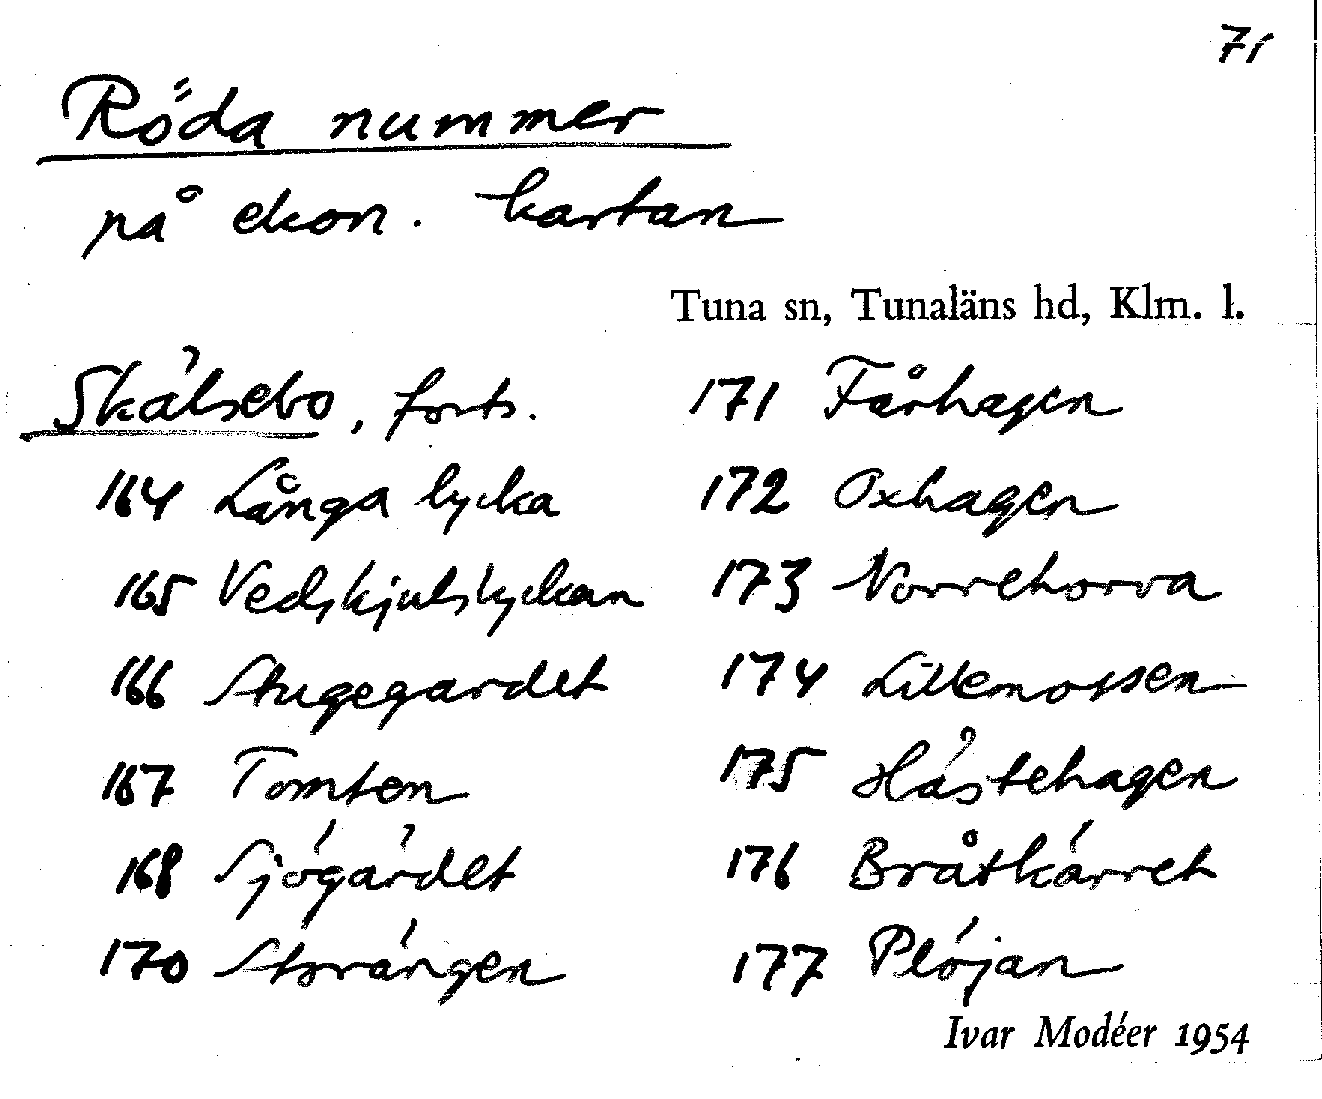 71
Röda nummer
på ekon. kartan
Tuna sn, Tunaläns hd, Klm. l.
Skälsebo, forts.
164 Långa lycka
165 Vedskjulslyckan
166 Stugegardet
167 Tomten
168 Sjögärdet
170 Storängen
171 Fårhagen
172 Oxhagen
173 Norrehorva
174 Lillemossen
175 Hästehagen
176 Bråtkärret
177 Plöjan
Ivar Modéer 1954